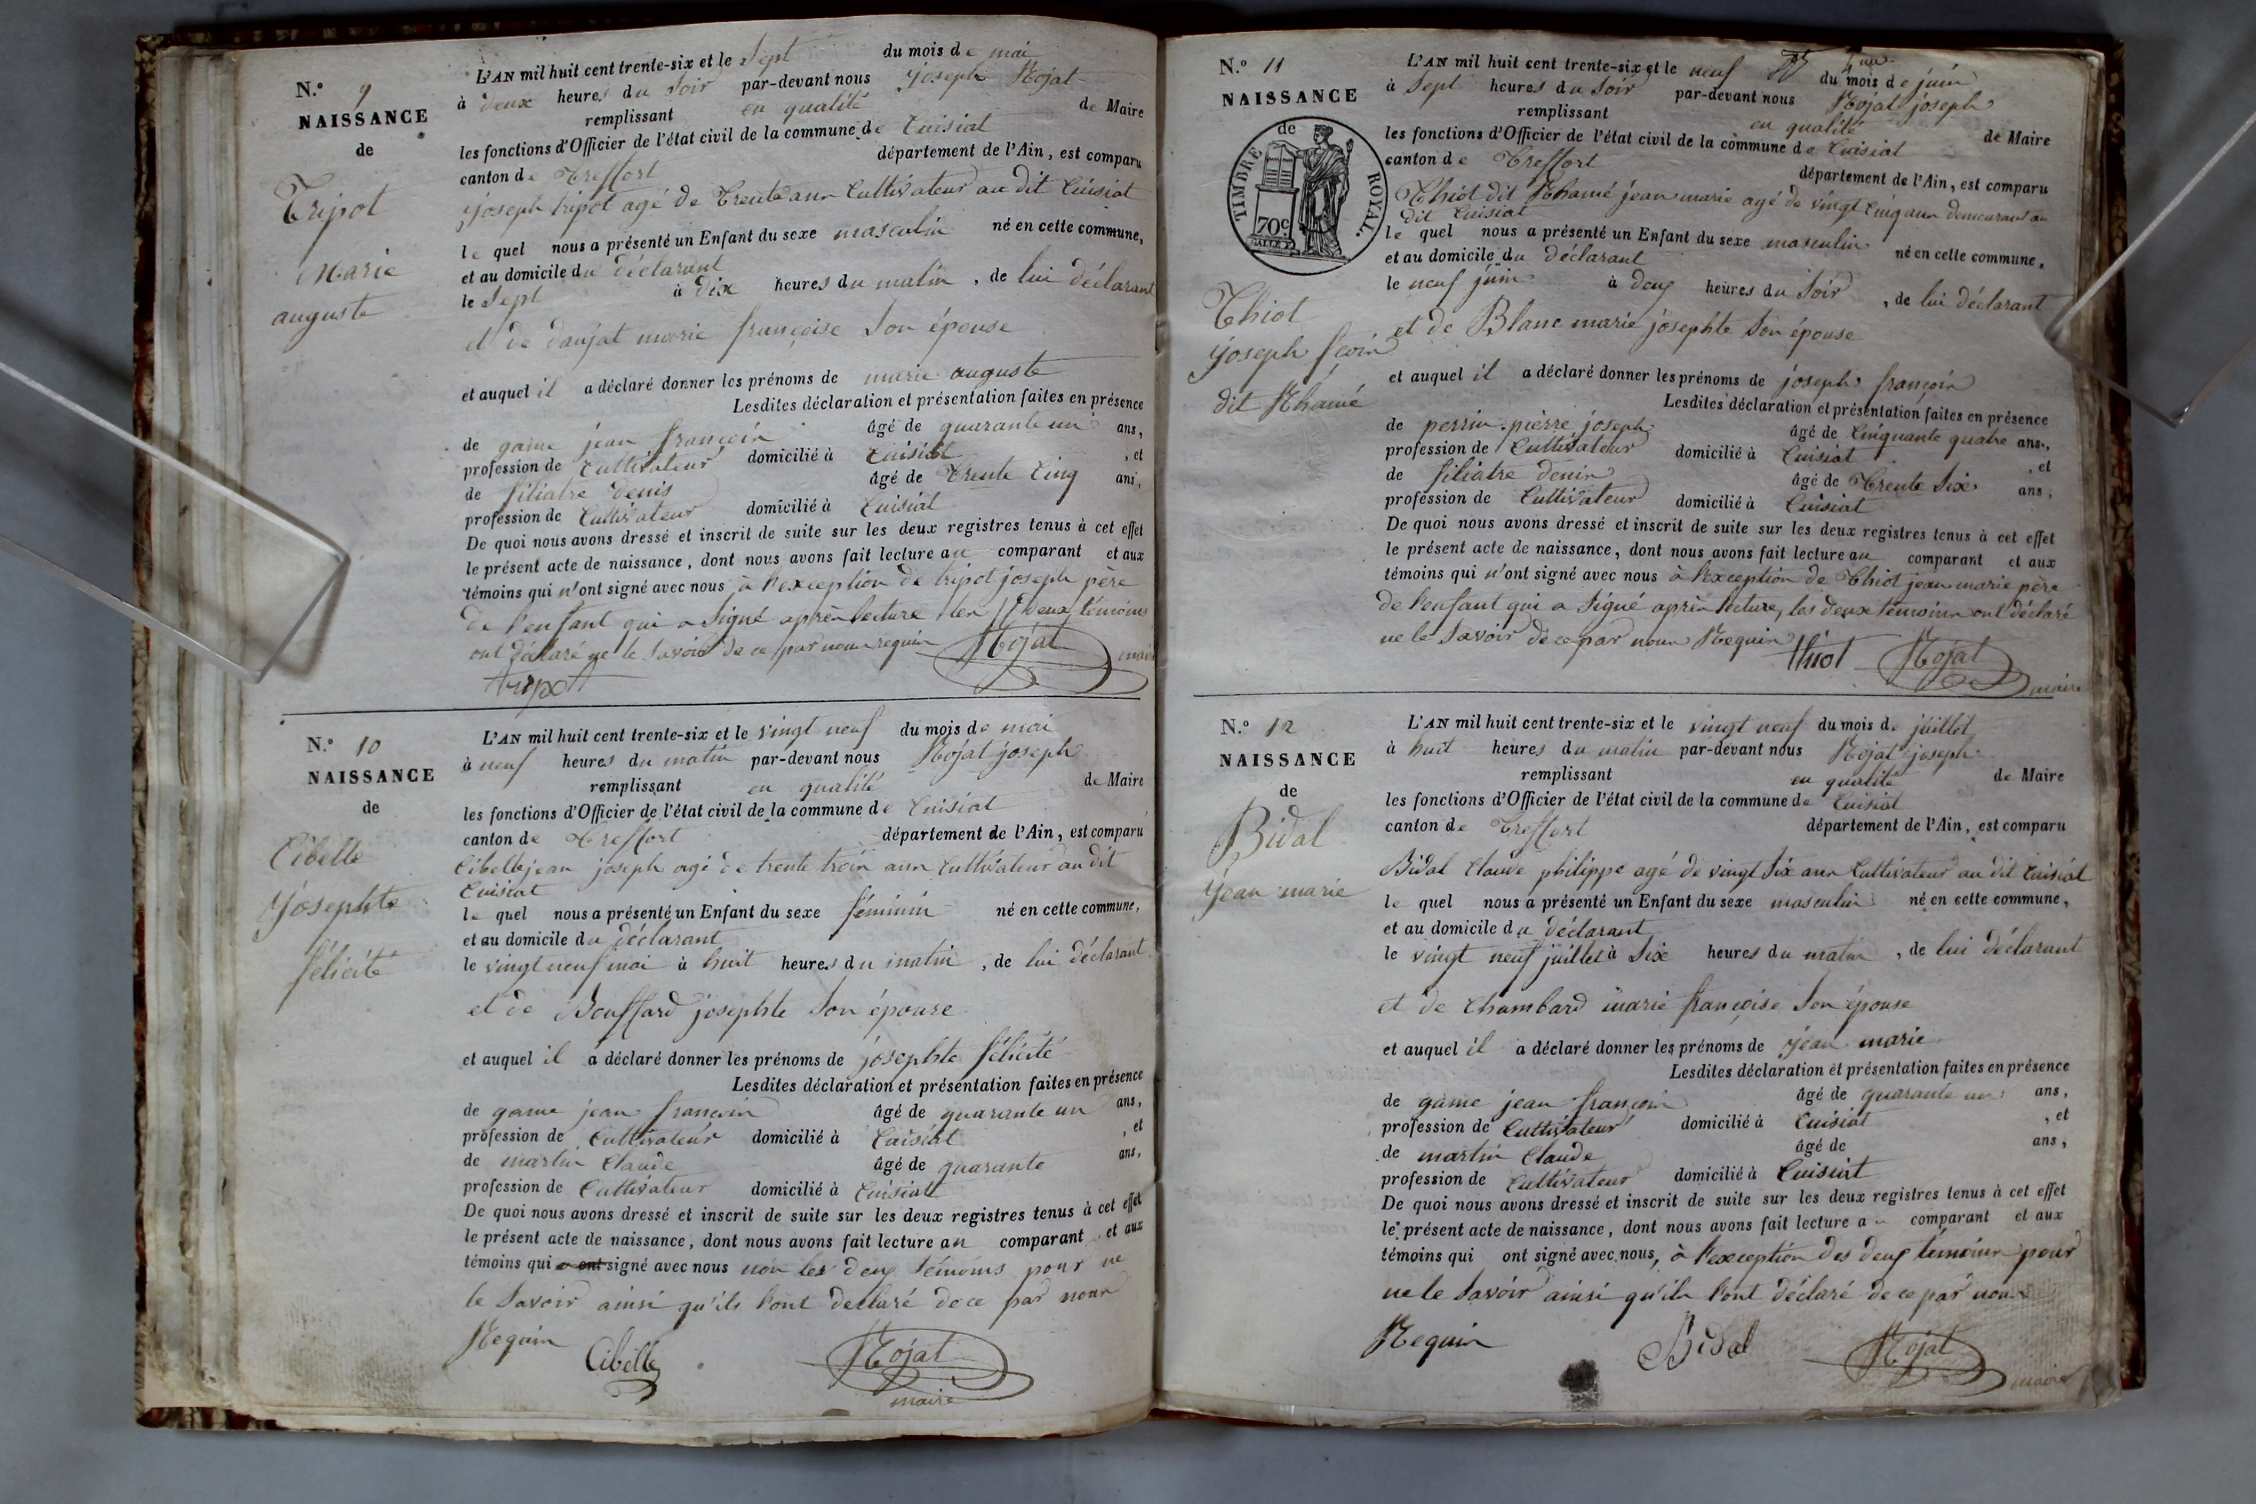 N.º 9
NAISSANCE
de
Tripot
Marie
auguste
L'AN mil huit cent trente-six et le Sept du mois de mai
à deux heures du Soir par-devant nous joseph Rojat
remplissant en qualité de Maire
les fonctions d'Officier de l'état civil de la commune de Cuisiat
canton de Treffort département de l'Ain, est comparu
joseph tripot agé de Trente ans Cultivateur au dit Cuisiat
le quel nous a présenté un Enfant du sexe masculin né en cette commune,
et au domicile du déclarant
le Sept à dix heures du matin, de lui déclarant
et de daujat marie françoise Son épouse
et auquel il a déclaré donner les prénoms de marie auguste
Lesdites déclaration et présentation faites en présence
de game jean françois âgé de quarante un ans,
profession de Cultivateur domicilié à Cuisiat, et
de filiatre denis âgé de Trente Cinq ans,
profession de Cultivateur domicilié à Cuisiat
De quoi nous avons dressé et inscrit de suite sur les deux registres tenus à cet effet
le présent acte de naissance, dont nous avons fait lecture au comparant et aux
témoins qui n'ont signé avec nous à l'exception de tripot joseph père
de l'enfant qui a Signé après lecture les deux témoins
ont déclaré ne le Savoir de ce par nous requis Rojat maire
tripot
N.º 10
NAISSANCE
de
Cibelle
Josephte
félicité
L'AN mil huit cent trente-six et le vingt neuf du mois de mai
à neuf heures du matin par-devant nous Rojat joseph
remplissant en qualité de Maire
les fonctions d'Officier de l'état civil de la commune de Cuisiat
canton de Treffort département de l'Ain, est comparu
Cibelle jean joseph agé de trente trois ans Cultivateur au dit
Cuisiat
le quel nous a présenté un Enfant du sexe féminin né en cette commune,
et au domicile du déclarant
le vingt neuf mai à huit heures du matin, de lui déclarant
et de Bouffard josephte Son épouse
et auquel il a déclaré donner les prénoms de josephte félicité
Lesdites déclaration et présentation faites en présence
de game jean françois âgé de quarante un ans,
profession de Cultivateur domicilié à Cuisiat, et
de martin Claude âgé de quarante ans,
profession de Cultivateur domicilié à Cuisiat
De quoi nous avons dressé et inscrit de suite sur les deux registres tenus à cet effet
le présent acte de naissance, dont nous avons fait lecture au comparant et aux
témoins qui ont signé avec nous non les deux témoins pour ne
le Savoir ainsi qu'ils l'ont déclaré de ce par nous
Requis Cibelle Rojat
maire
N.º 11
NAISSANCE
de
TIMBRE ROYAL.
70c
Thiot
joseph fcois
dit Rhamé
L'AN mil huit cent trente-six et le neuf du mois de juin
à Sept heures du Soir par-devant nous Rojat joseph
remplissant en qualité de Maire
les fonctions d'Officier de l'état civil de la commune de Cuisiat
canton de Treffort département de l'Ain, est comparu
Thiot dit Rhamé jean marie agé de vingt Cinq ans demeurant au
dit Cuisiat
le quel nous a présenté un Enfant du sexe masculin né en cette commune,
et au domicile du déclarant
le neuf juin à deux heures du Soir, de lui déclarant
et de Blanc marie josephte Son épouse
et auquel il a déclaré donner les prénoms de joseph françois
Lesdites déclaration et présentation faites en présence
de perrin pierre joseph âgé de Cinquante quatre ans,
profession de Cultivateur domicilié à Cuisiat, et
de filiatre denis âgé de Trente Six ans,
profession de Cultivateur domicilié à Cuisiat
De quoi nous avons dressé et inscrit de suite sur les deux registres tenus à cet effet
le présent acte de naissance, dont nous avons fait lecture au comparant et aux
témoins qui n'ont signé avec nous à l'exception de Thiot jean marie père
de l'enfant qui a Signé après lecture, les deux témoins ont déclaré
ne le Savoir de ce par nous Requis Thiot Rojat
maire
N.º 12
NAISSANCE
de
Bidal
Jean marie
L'AN mil huit cent trente-six et le vingt neuf du mois de juillet
à huit heures du matin par-devant nous Rojat joseph
remplissant en qualité de Maire
les fonctions d'Officier de l'état civil de la commune de Cuisiat
canton de Treffort département de l'Ain, est comparu
Bidal Claude philippe agé de vingt Six ans Cultivateur au dit Cuisiat
le quel nous a présenté un Enfant du sexe masculin né en cette commune,
et au domicile du déclarant
le vingt neuf juillet à Six heures du matin, de lui déclarant
et de Chambard marie françoise Son épouse
et auquel il a déclaré donner les prénoms de jean marie
Lesdites déclaration et présentation faites en présence
de game jean françois âgé de quarante un ans,
profession de Cultivateur domicilié à Cuisiat, et
de martin Claude âgé de ans,
profession de Cultivateur domicilié à Cuisiat
De quoi nous avons dressé et inscrit de suite sur les deux registres tenus à cet effet
le présent acte de naissance, dont nous avons fait lecture au comparant et aux
témoins qui ont signé avec nous, à l'exception des deux témoins pour
ne le Savoir ainsi qu'ils l'ont déclaré de ce par nous
Requis Bidal Rojat
maire